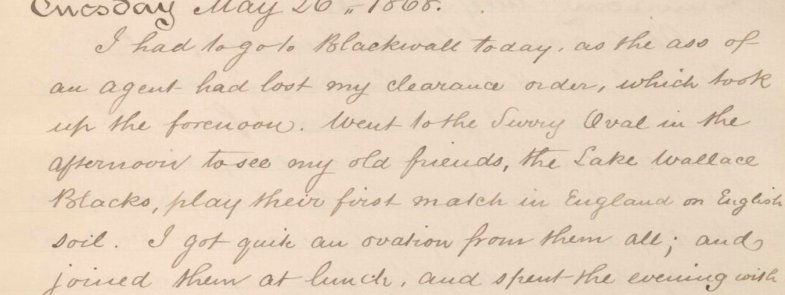 Tuesday May 26 " 1868.
I had to go to Blackwall today, as the ass of
an agent had lost my clearance order, which took
up the forenoon. Went to the Surry Oval in the
afternoon to see my old friends, the Lake Wallace
Blacks, play their first match in England on English
soil. I got quite an ovation from them all; and
joined them at lunch, and spent the evening with